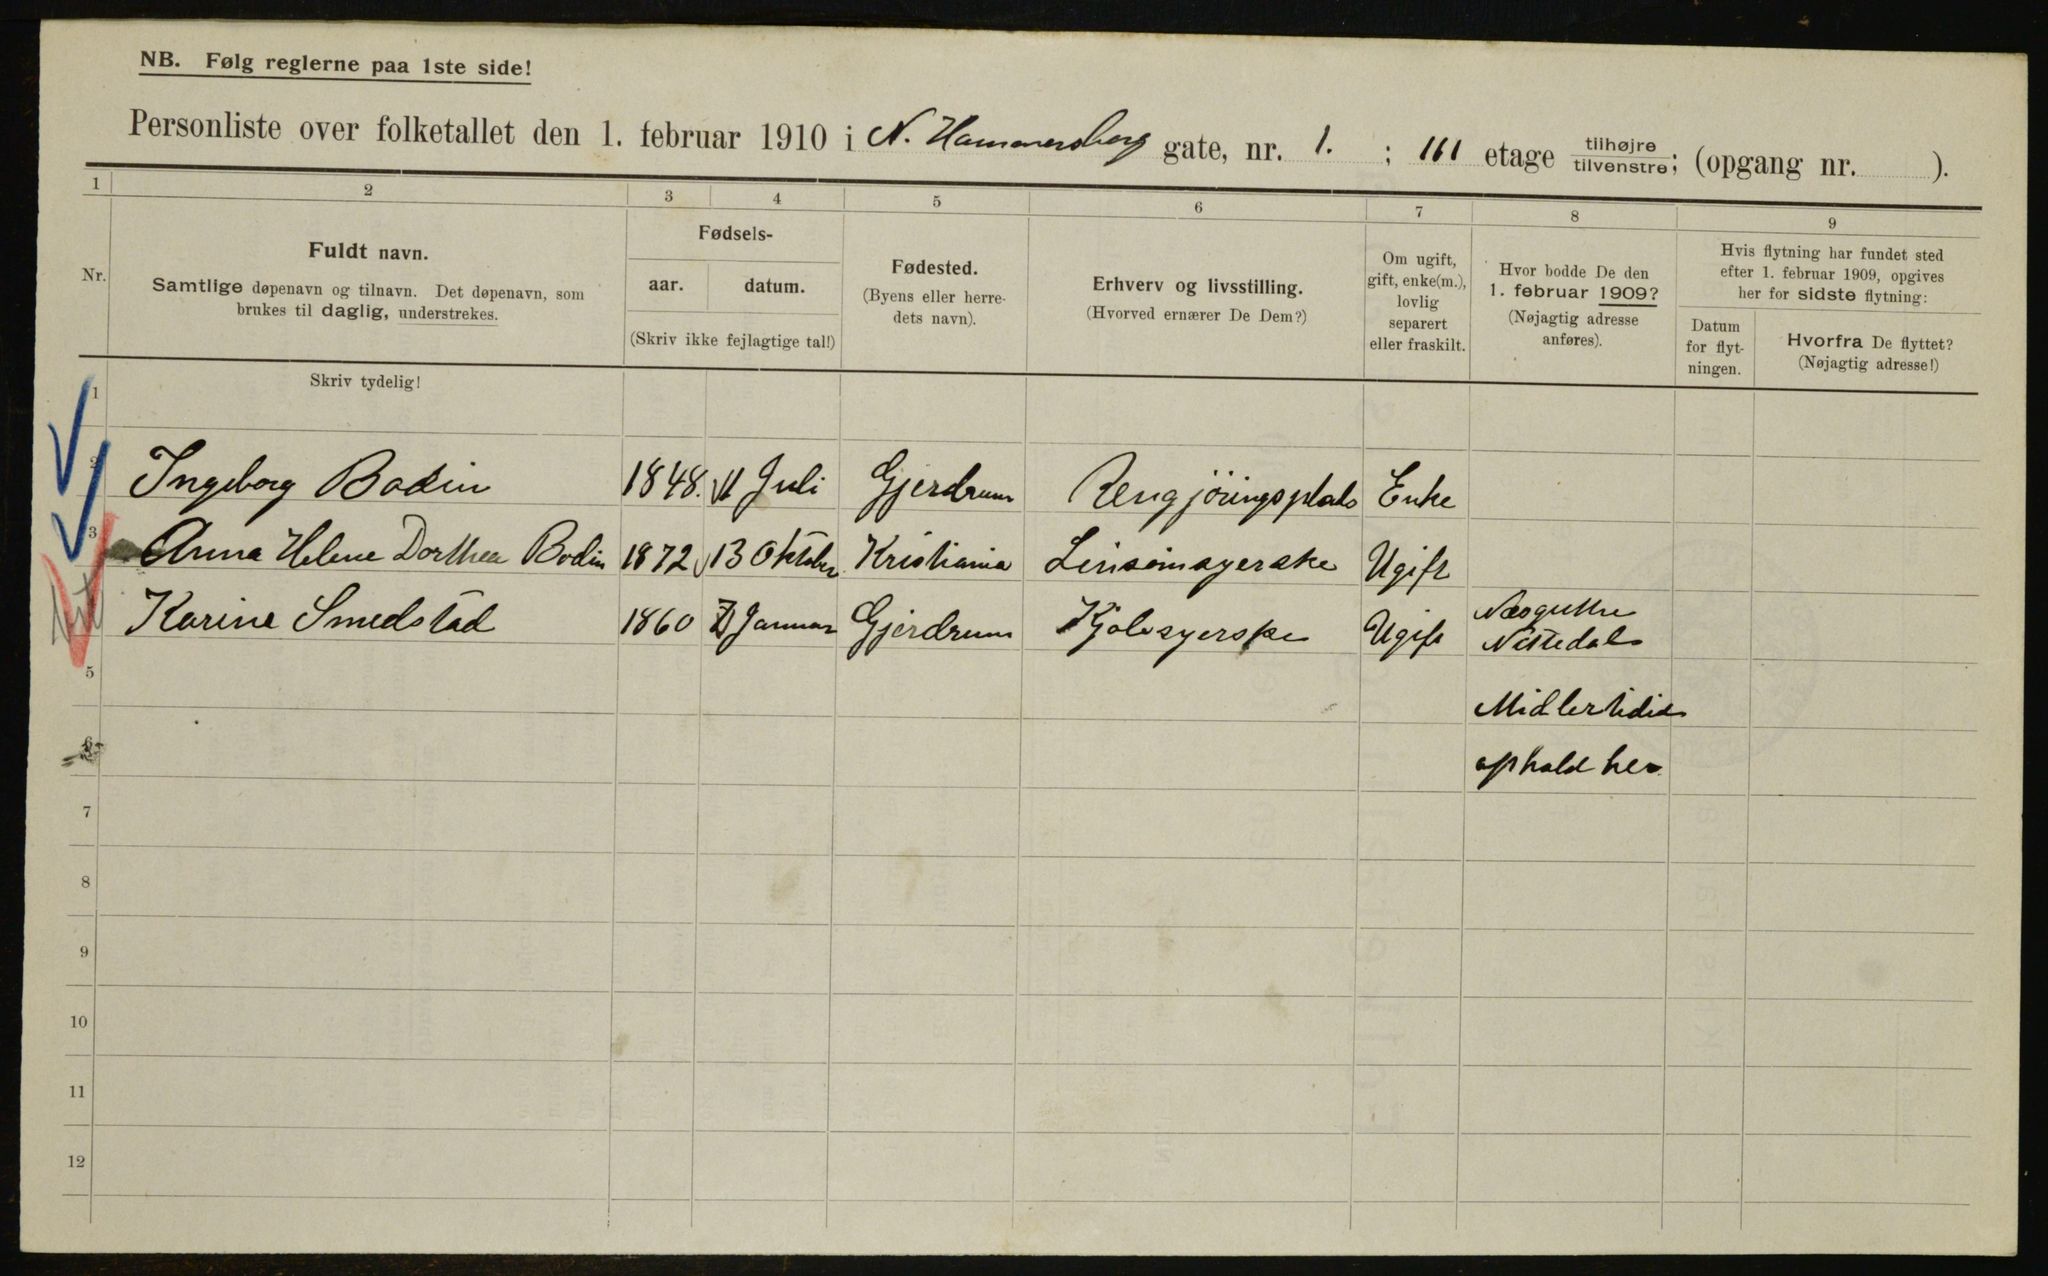 NB. Følg reglerne paa 1ste side!
Personliste over folketallet den 1. februar 1910 i N. Hammersborg gate, nr. 1. ; III etage tilhøjre tilvenstre; (opgang nr. ).
1 2 3 4 5 6 7 8 9
Nr.
Fuldt navn.
Samtlige døpenavn og tilnavn. Det døpenavn, som
brukes til daglig, understrekes.
Fødsels-
aar. datum.
(Skriv ikke fejlagtige tal!)
Fødested.
(Byens eller herre-
dets navn).
Erhverv og livsstilling.
(Hvorved ernærer De Dem?)
Om ugift,
gift, enke(m.),
lovlig
separert
eller fraskilt.
Hvor bodde De den
1. februar 1909?
(Nøjagtig adresse
anføres).
Hvis flytning har fundet sted
efter 1. februar 1909, opgives
her for sidste flytning:
Datum
for flyt-
ningen.
Hvorfra De flyttet?
(Nøjagtig adresse!)
Skriv tydelig!
1
2 Ingeborg Bodin 1848. Juli Gjerdrum Rengjöringsplads Enke
3 Anna Helene Dorthea Bodin 1872 13 Oktober Kristiania Linsömsyerske Ugift
Karine Smedstad 1860 Januar Gjerdrum Kjolesyerske Ugift
Nittedal
5 Midlertidig
6 ophold her
7
8
9
10
11
12